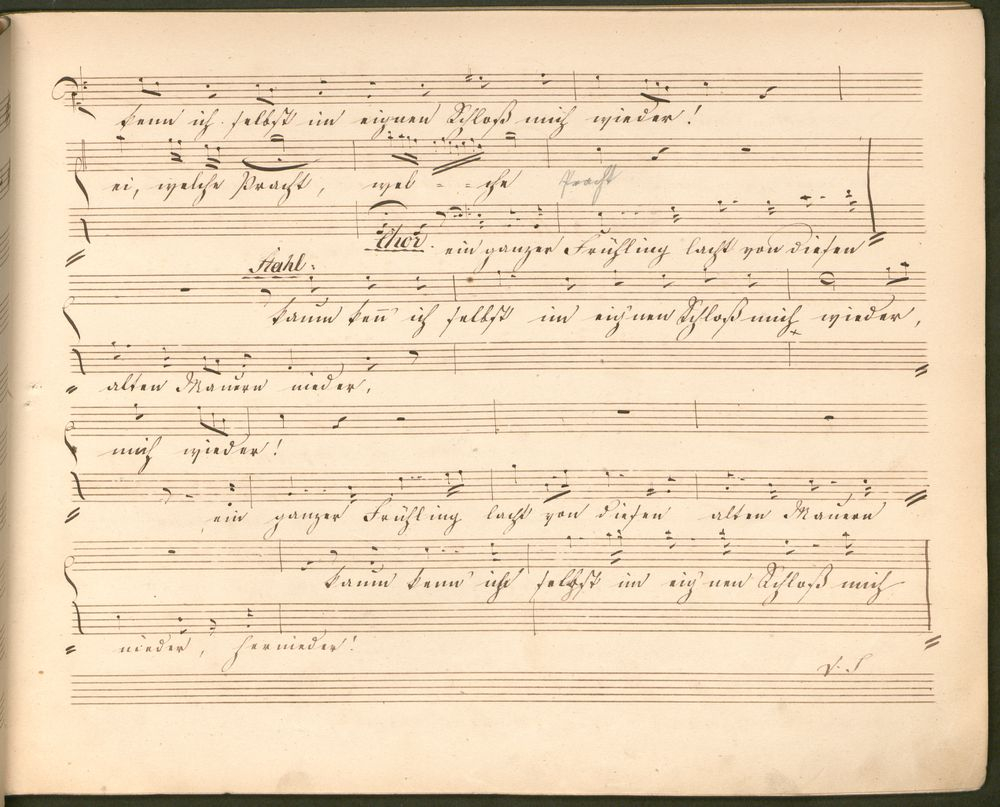 kenn ich selbst im eignen Schloß mich wieder!
ei, welche Pracht, wel - - che Pracht
Chor. ein ganzer Frühling lacht von diesen
Stahl:
kaum ken̅ ich selbst im eignen Schloß mich wieder,
alten Mauern nieder,
mich wieder!
ein ganzer Frühling lacht von diesen alten Mauern
kaum kenn' ich selbst im eig nen Schloß mich
nieder, hernieder!
V. S